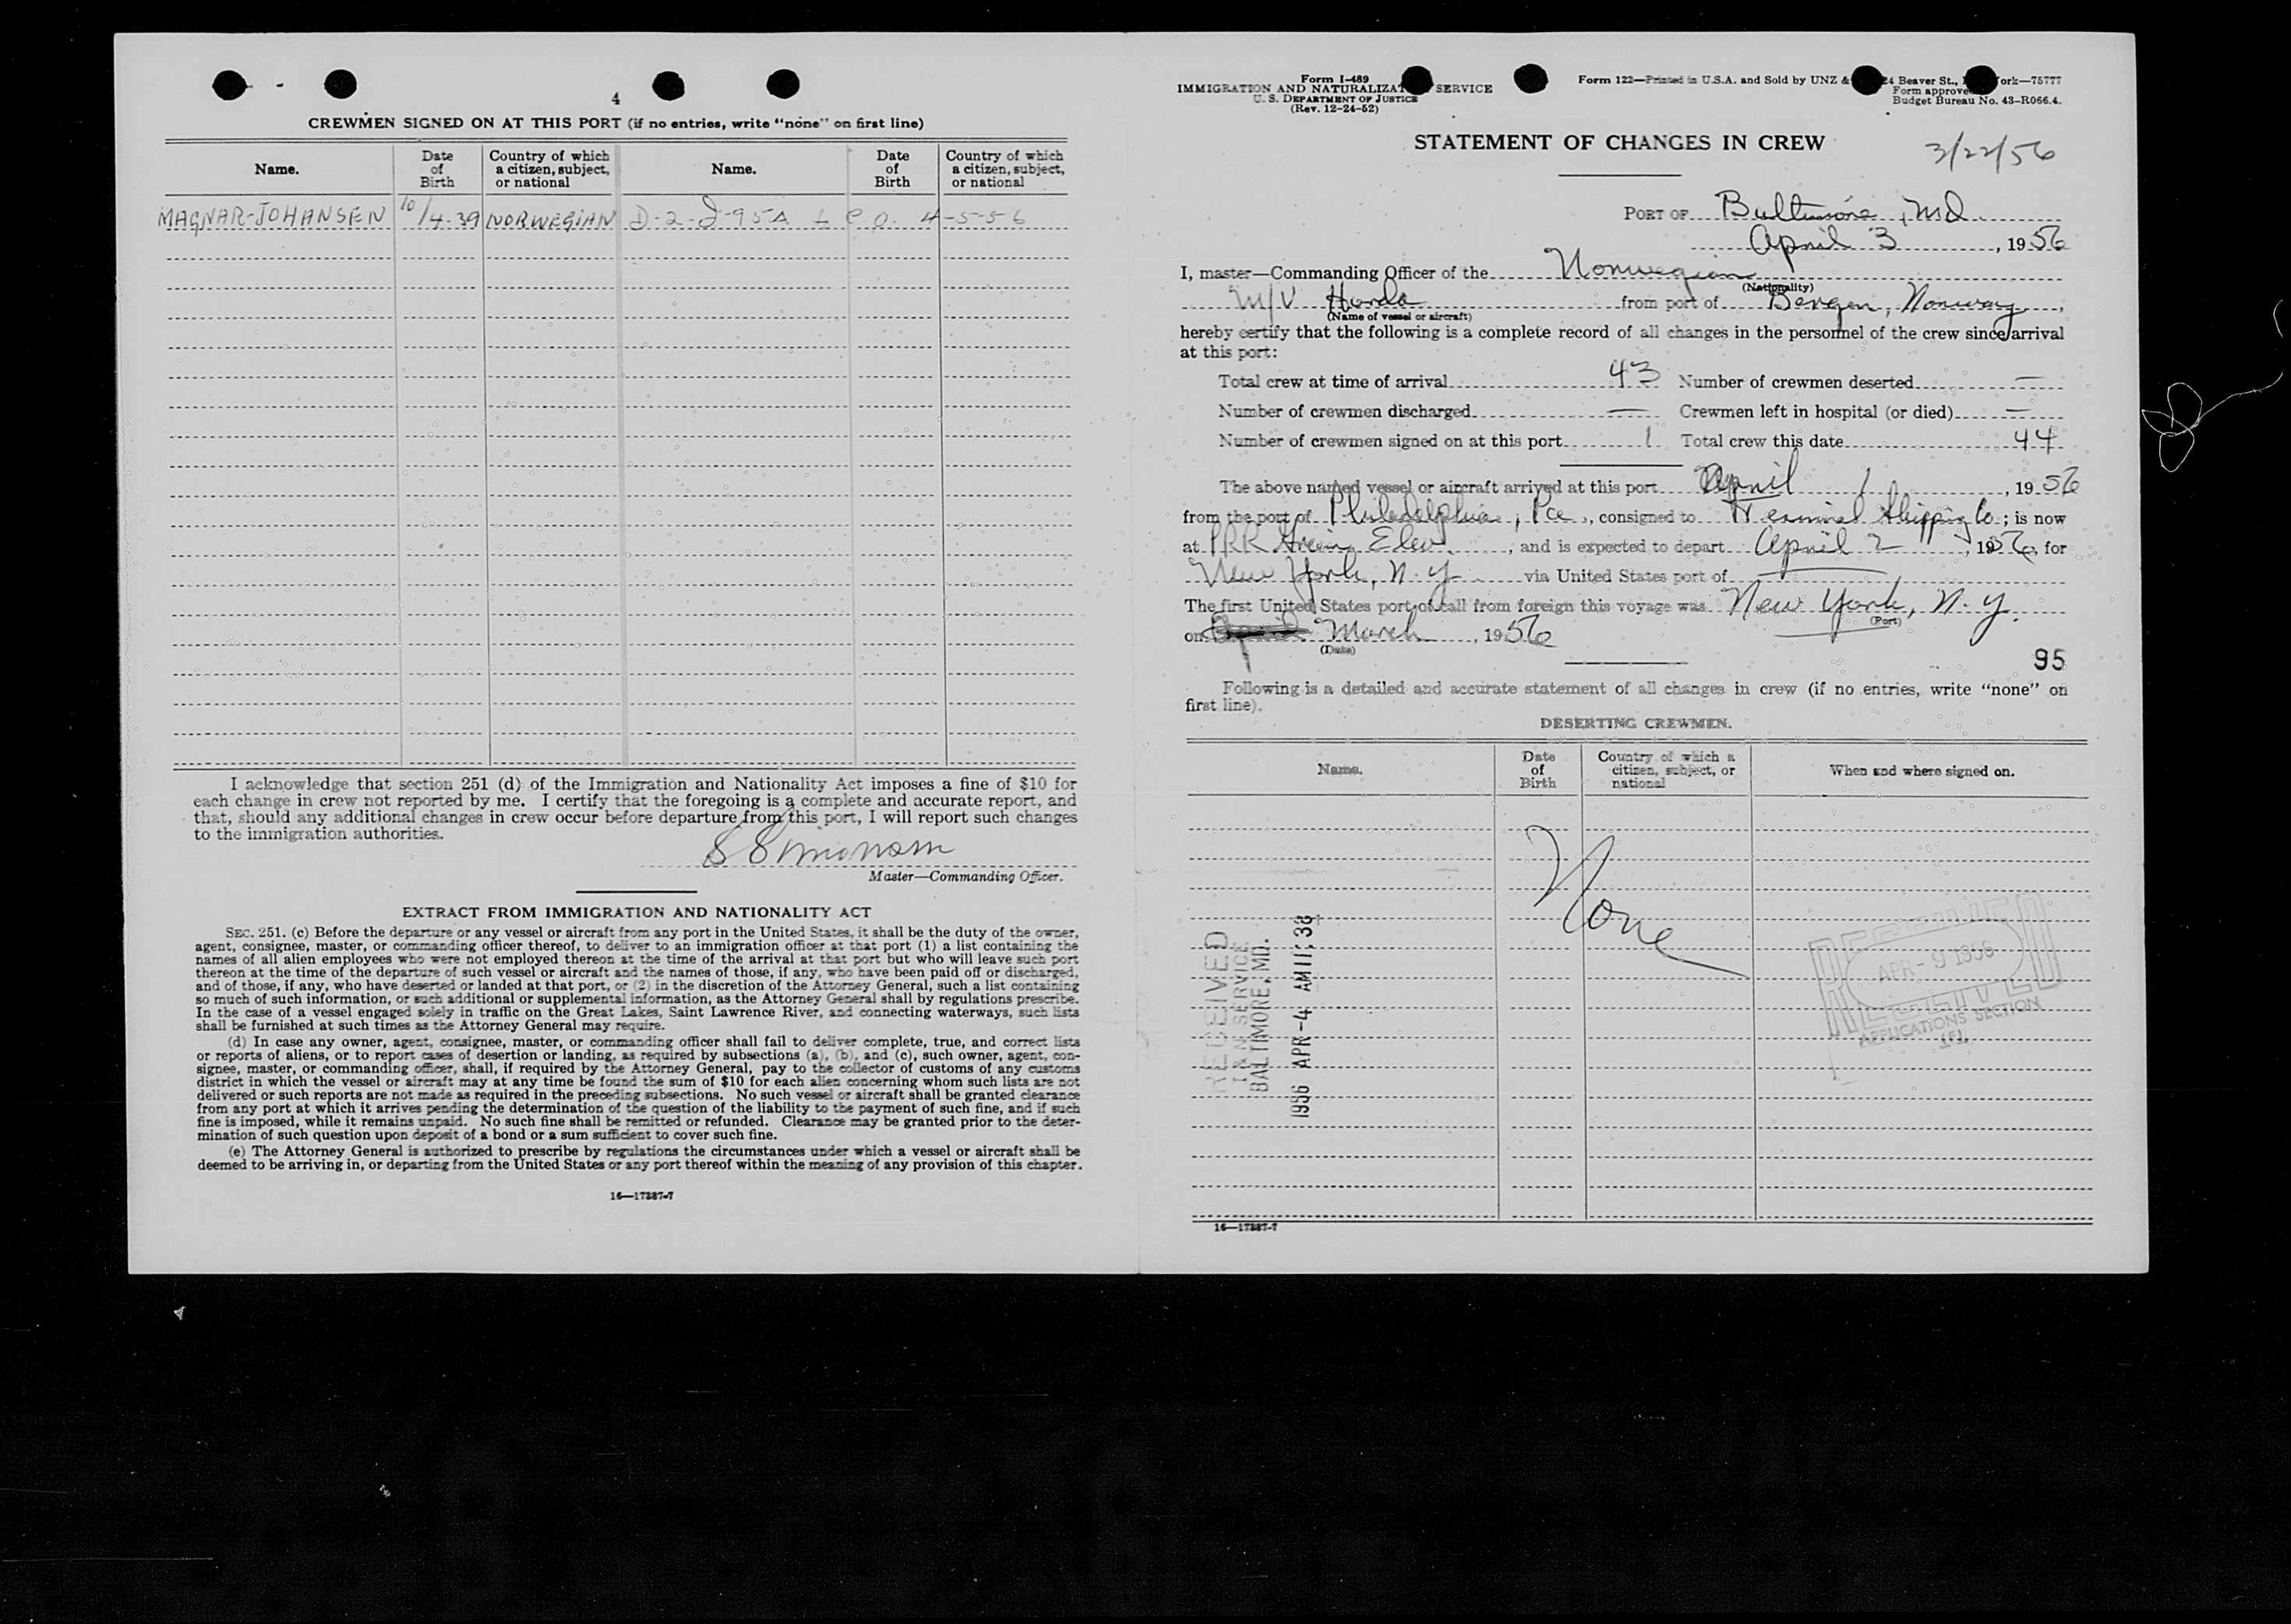 4
CREWMEN SIGNED ON AT THIS PORT (if no entries, write "none" on first line)
Name. Date of Birth Country of which a citizen, subject, or national Name. Date of Birth Country of which a citizen, subject, or national
MAGNAR-JOHANSEN 10/4-39 NORWEGIAN D-2- -95A L P O. 4-5-56
I acknowledge that section 251 (d) of the Immigration and Nationality Act imposes a fine of $10 for
each change in crew not reported by me. I certify that the foregoing is a complete and accurate report, and
that, should any additional changes in crew occur before departure from this port, I will report such changes
to the immigration authorities.
Master—Commanding Officer.
EXTRACT FROM IMMIGRATION AND NATIONALITY ACT
SEC. 251. (c) Before the departure or any vessel or aircraft from any port in the United States, it shall be the duty of the owner,
agent, consignee, master, or commanding officer thereof, to deliver to an immigration officer at that port (1) a list containing the
names of all alien employees who were not employed thereon at the time of the arrival at that port but who will leave such port
thereon at the time of the departure of such vessel or aircraft and the names of those, if any, who have been paid off or discharged,
and of those, if any, who have deserted or landed at that port, or (2) in the discretion of the Attorney General, such a list containing
so much of such information, or such additional or supplemental information, as the Attorney General shall by regulations prescribe.
In the case of a vessel engaged solely in traffic on the Great Lakes, Saint Lawrence River, and connecting waterways, such lists
shall be furnished at such times as the Attorney General may require.
(d) In case any owner, agent, consignee, master, or commanding officer shall fail to deliver complete, true, and correct lists
or reports of aliens, or to report cases of desertion or landing, as required by subsections (a), (b), and (c), such owner, agent, con-
signee, master, or commanding officer, shall, if required by the Attorney General, pay to the collector of customs of any customs
district in which the vessel or aircraft may at any time be found the sum of $10 for each alien concerning whom such lists are not
delivered or such reports are not made as required in the preceding subsections. No such vessel or aircraft shall be granted clearance
from any port at which it arrives pending the determination of the question of the liability to the payment of such fine, and if such
fine is imposed, while it remains unpaid. No such fine shall be remitted or refunded. Clearance may be granted prior to the deter-
mination of such question upon deposit of a bond or a sum sufficient to cover such fine.
(e) The Attorney General is authorized to prescribe by regulations the circumstances under which a vessel or aircraft shall be
deemed to be arriving in, or departing from the United States or any port thereof within the meaning of any provision of this chapter.
16—17387-7
Form I-489
IMMIGRATION AND NATURALIZAT SERVICE
U. S. DEPARTMENT OF JUSTICE
(Rev. 12-24-52)
Form 122—Printed in U.S.A. and Sold by UNZ & 24 Beaver St., ork—75777
Form approve
Budget Bureau No. 43-R066.4.
STATEMENT OF CHANGES IN CREW
3/22/56
PORT OF Baltimore, Md.
April 3, 1956
I, master—Commanding Officer of the Norwegian
(Nationality)
M/V Horda from port of Bergen, Norway,
(Name of vessel or aircraft)
hereby certify that the following is a complete record of all changes in the personnel of the crew since arrival
at this port:
Total crew at time of arrival 43 Number of crewmen deserted —
Number of crewmen discharged — Crewmen left in hospital (or died) —
Number of crewmen signed on at this port 1 Total crew this date 44
The above named vessel or aircraft arrived at this port April 1, 1956
from the port of Philadelphia, Pa., consigned to Terminal Shipping Co; is now
at PRR Grain Elev., and is expected to depart April 2, 1956, for
New York, N.Y. via United States port of —
The first United States port of call from foreign this voyage was New York, N.Y.
(Port)
on March, 1956
(Date)
95
Following is a detailed and accurate statement of all changes in crew (if no entries, write "none" on
first line).
DESERTING CREWMEN.
Name. Date of Birth Country of which a citizen, subject, or national When and where signed on.
None
RECEIVED
I & N SERVICE
BALTIMORE, MD.
1956 APR-4 AM 11:38
RECEIVED
APR-9 1956
APPLICATIONS SECTION
16—17387-7